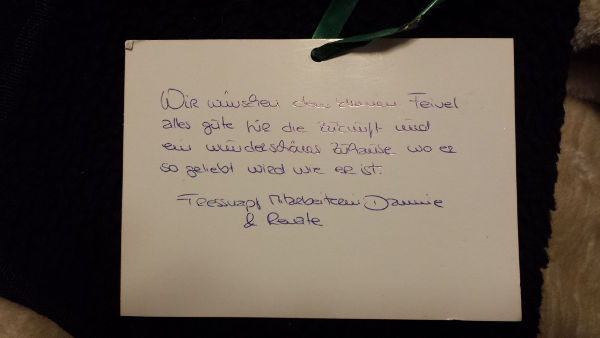 Wir wünschen dem kleinen Feivel
alles gute für die Zukunft und
ein wunderschönes Zuhause wo er
so geliebt wird wie er ist.
Fressnapf Mitarbeiterin Dannie
& Renate